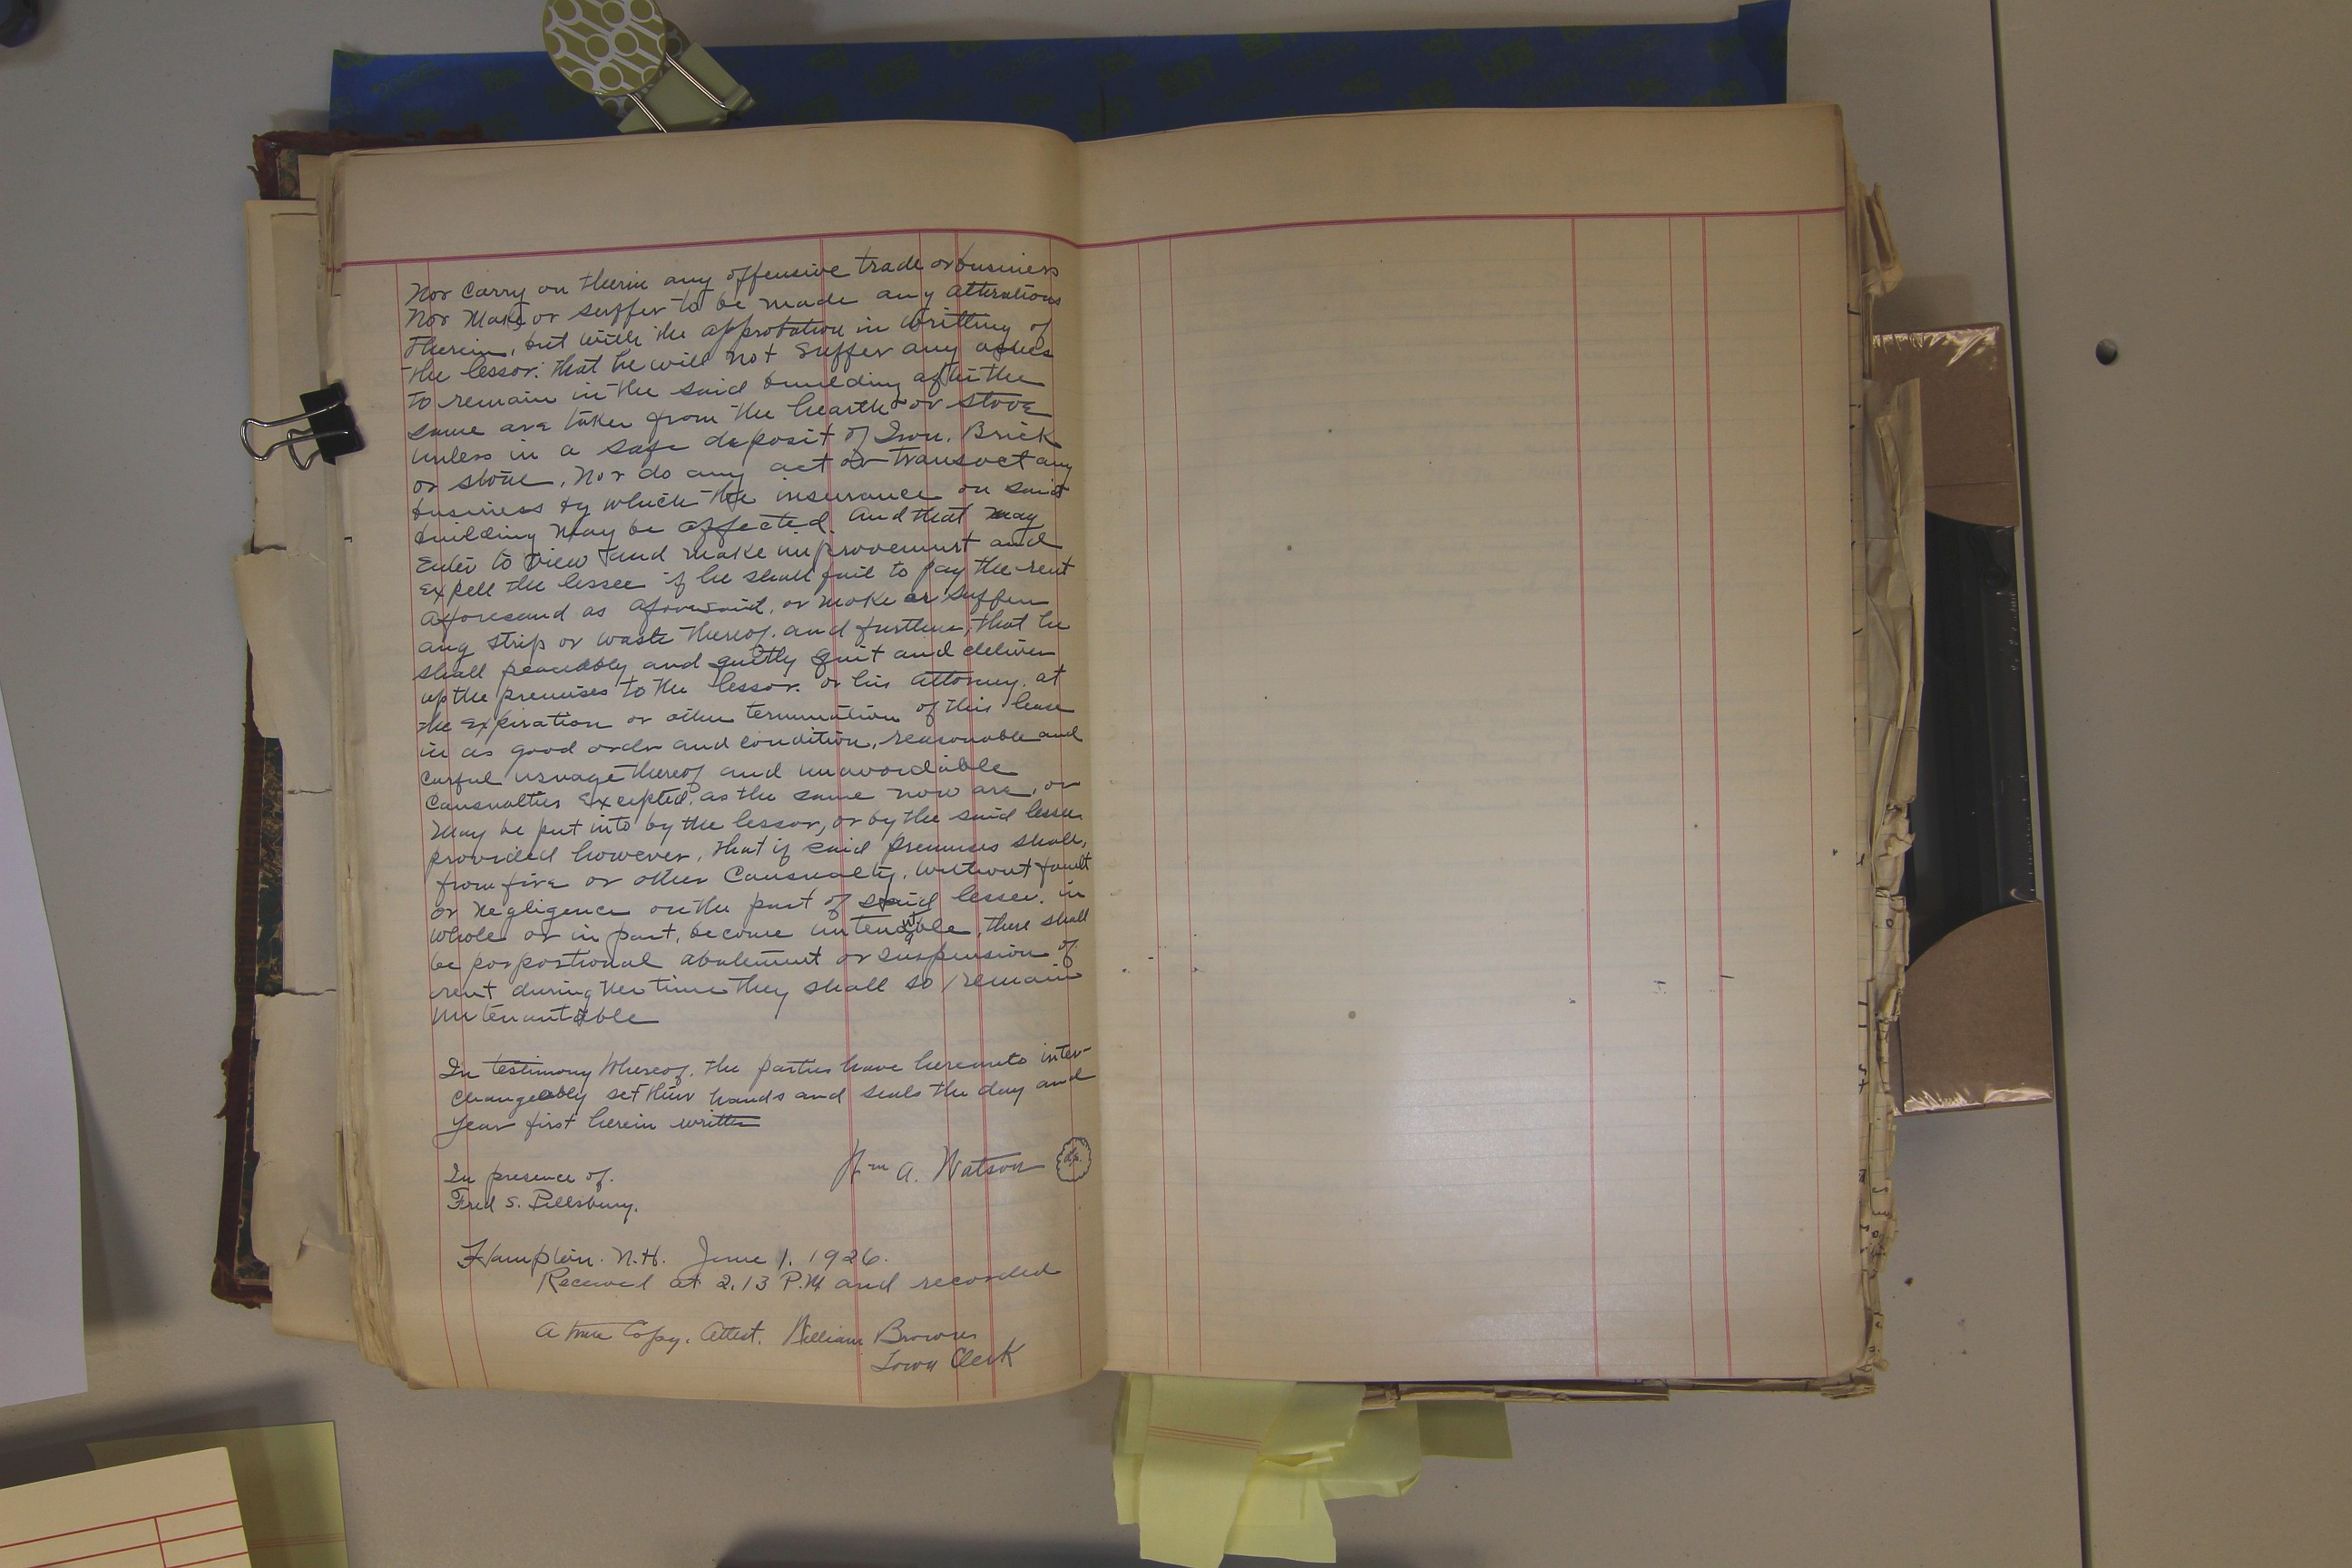 Nor Carry on therin any offensive trade or business
Nor Make or suffer to be made any Altterations
Therein, but with the approbation in Writting of
the lessor. that he will not Suffer any ashes
to remain in the said building after the
same are taken from the hearth or stove
unless in a safe deposit of Iron, Brick
or stone, Nor do any act or transact any
business by which the insurance on said
building May be affected. And that may
Enter to View and make improvement and
Expell the lessee if he shall fail to pay the rent
aforesaid as aforesaid, or make or suffer
any strip or waste thereof. and further, that he
shall peaceably and quitly Quit and deliver
up the premises to the lessor. or his attorney. at
the Expiration or other termination of this lease
in as good order and condition, reasonable and
carful usuage thereof and unavoidable
Causualties Excepted. as the same now are, or
May be put into by the lessor, or by the said lessee
provided however, that if said Premises shall,
from fire or other Causualty. Without fault
or Negligence on the part of said lessee, in
Whole or in part, become untenantable, there shall
be porportional abatement or suspension of
rent during the time they shall so remain
Untenantable
In testimony Whereof. the parties have hereunto inter-
changeably set their hands and seals the day and
Year first herein written
Wm A. Watson
In presence of.
Fred S. Pillsbury.
Hampton. N.H. June 1. 1926.
Received at 2.13 P.M and recorded
A true Copy. Attest. William Brown
Town Clerk